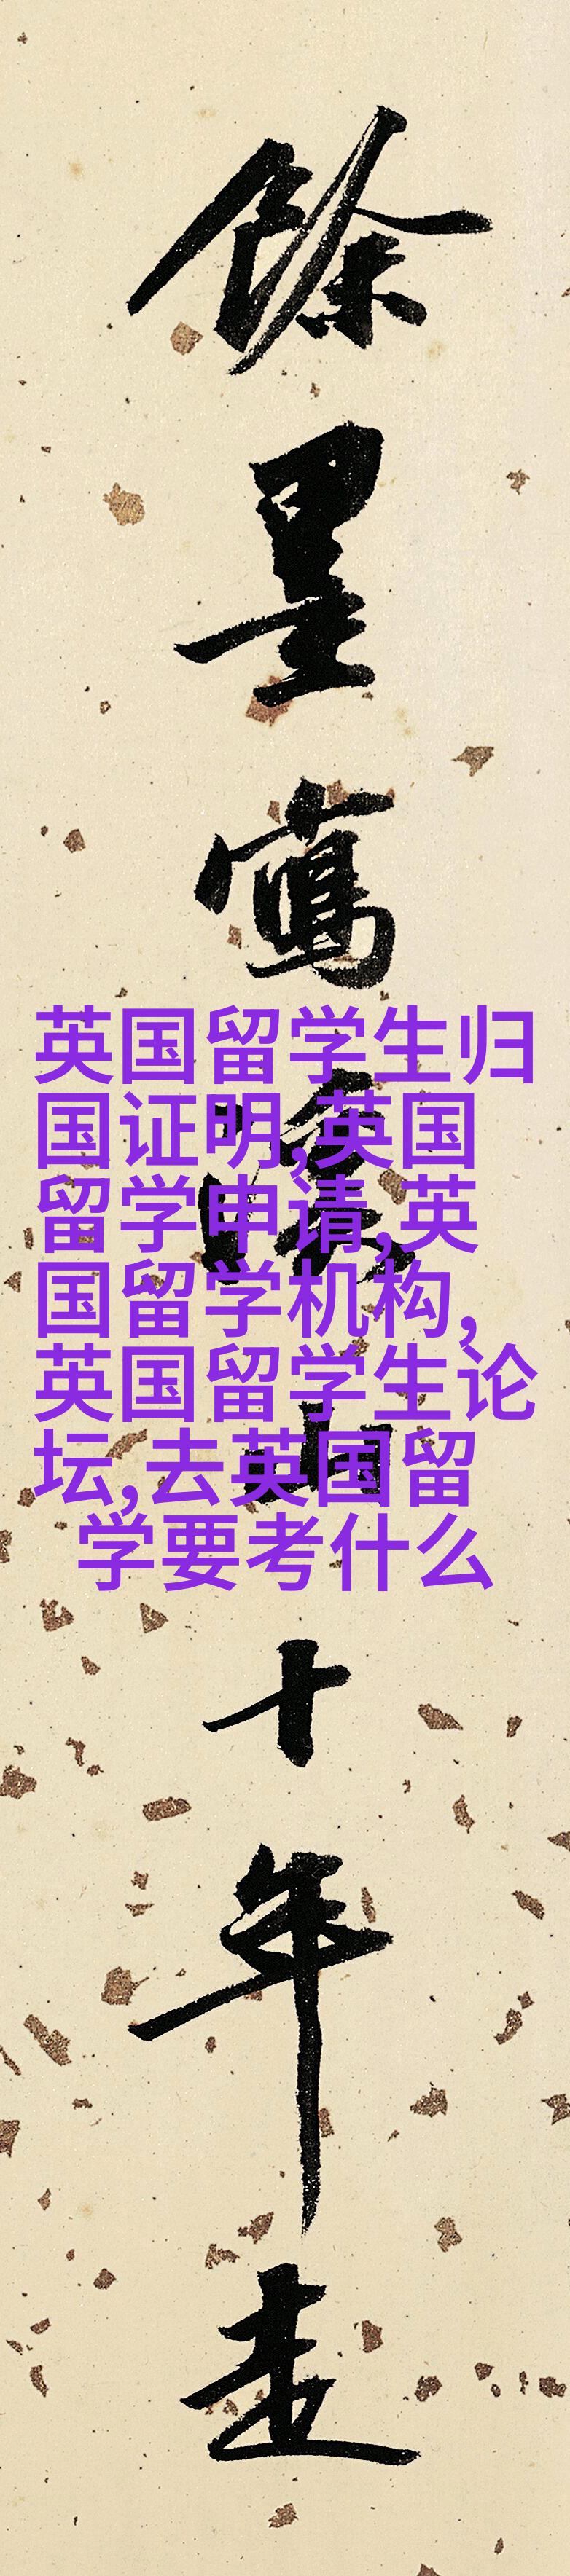 餘墨寫山十年走
英国留学生归
国证明,英国
留学申请,英
国留学机构,
英国留学生论
坛,去英国留
学要考什么